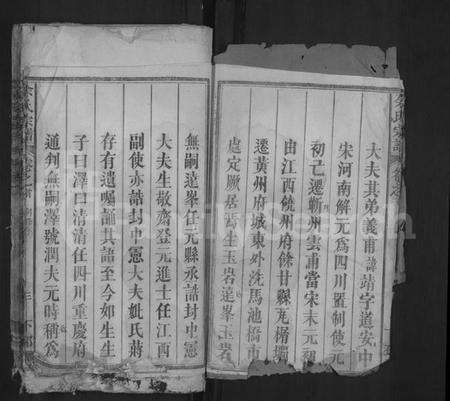 大夫其弟義甫諱靖字道安中
宋河南解元為四川置制使元
初已遷蘄州雲甫當宋末元初
由江西饒州府餘甘縣瓦橋壩
遷黃州府城東外洗馬池橋市
處定厥居焉生玉岩達峯玉岩
無嗣達峯任元縣承誥封中憲
大夫生敬齋登元進士任江西
副使亦誥封中憲大夫妣氏蔣
存有遺囑誦其語至今如生生
子曰澤曰清清任四川重慶府
通判無嗣澤號潤夫元時稱為
FamilySearch